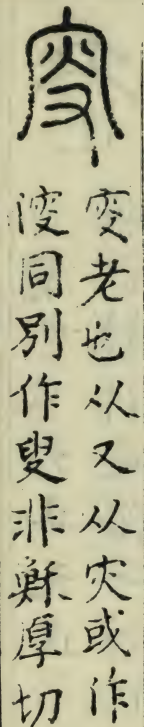 叜
叜老也从又从灾或作
𠋢同別作叟非穌厚切